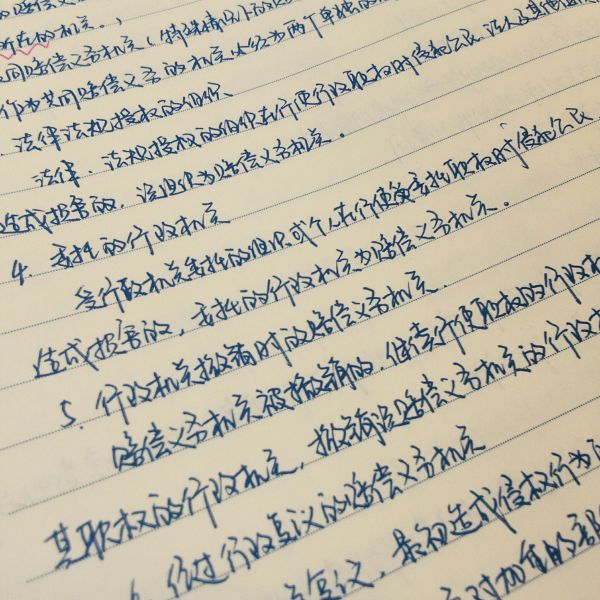 所在的机关。
共同赔偿义务机关(特殊情
作为共同赔偿义务的机关必须为两个单独的
法律法规授权的组织、
法律、法规授权的组织在行使行政职权时侵犯公民、法人及其他
造成损害的,该组织为赔偿义务机关。
4. 委托的行政机关
受行政机关委托的组织或个人在行使受委托职权时侵犯公民
造成损害的,委托的行政机关为赔偿义务机关。
5. 行政机关撤销时的赔偿义务机关
赔偿义务机关被撤销的,继续行使职权的行政机
其职权的行政机关,撤销该赔偿义务机关的行政机
6. 经过行政复议的赔偿义务机关
复议,最初造成侵权行为的
对加重的部